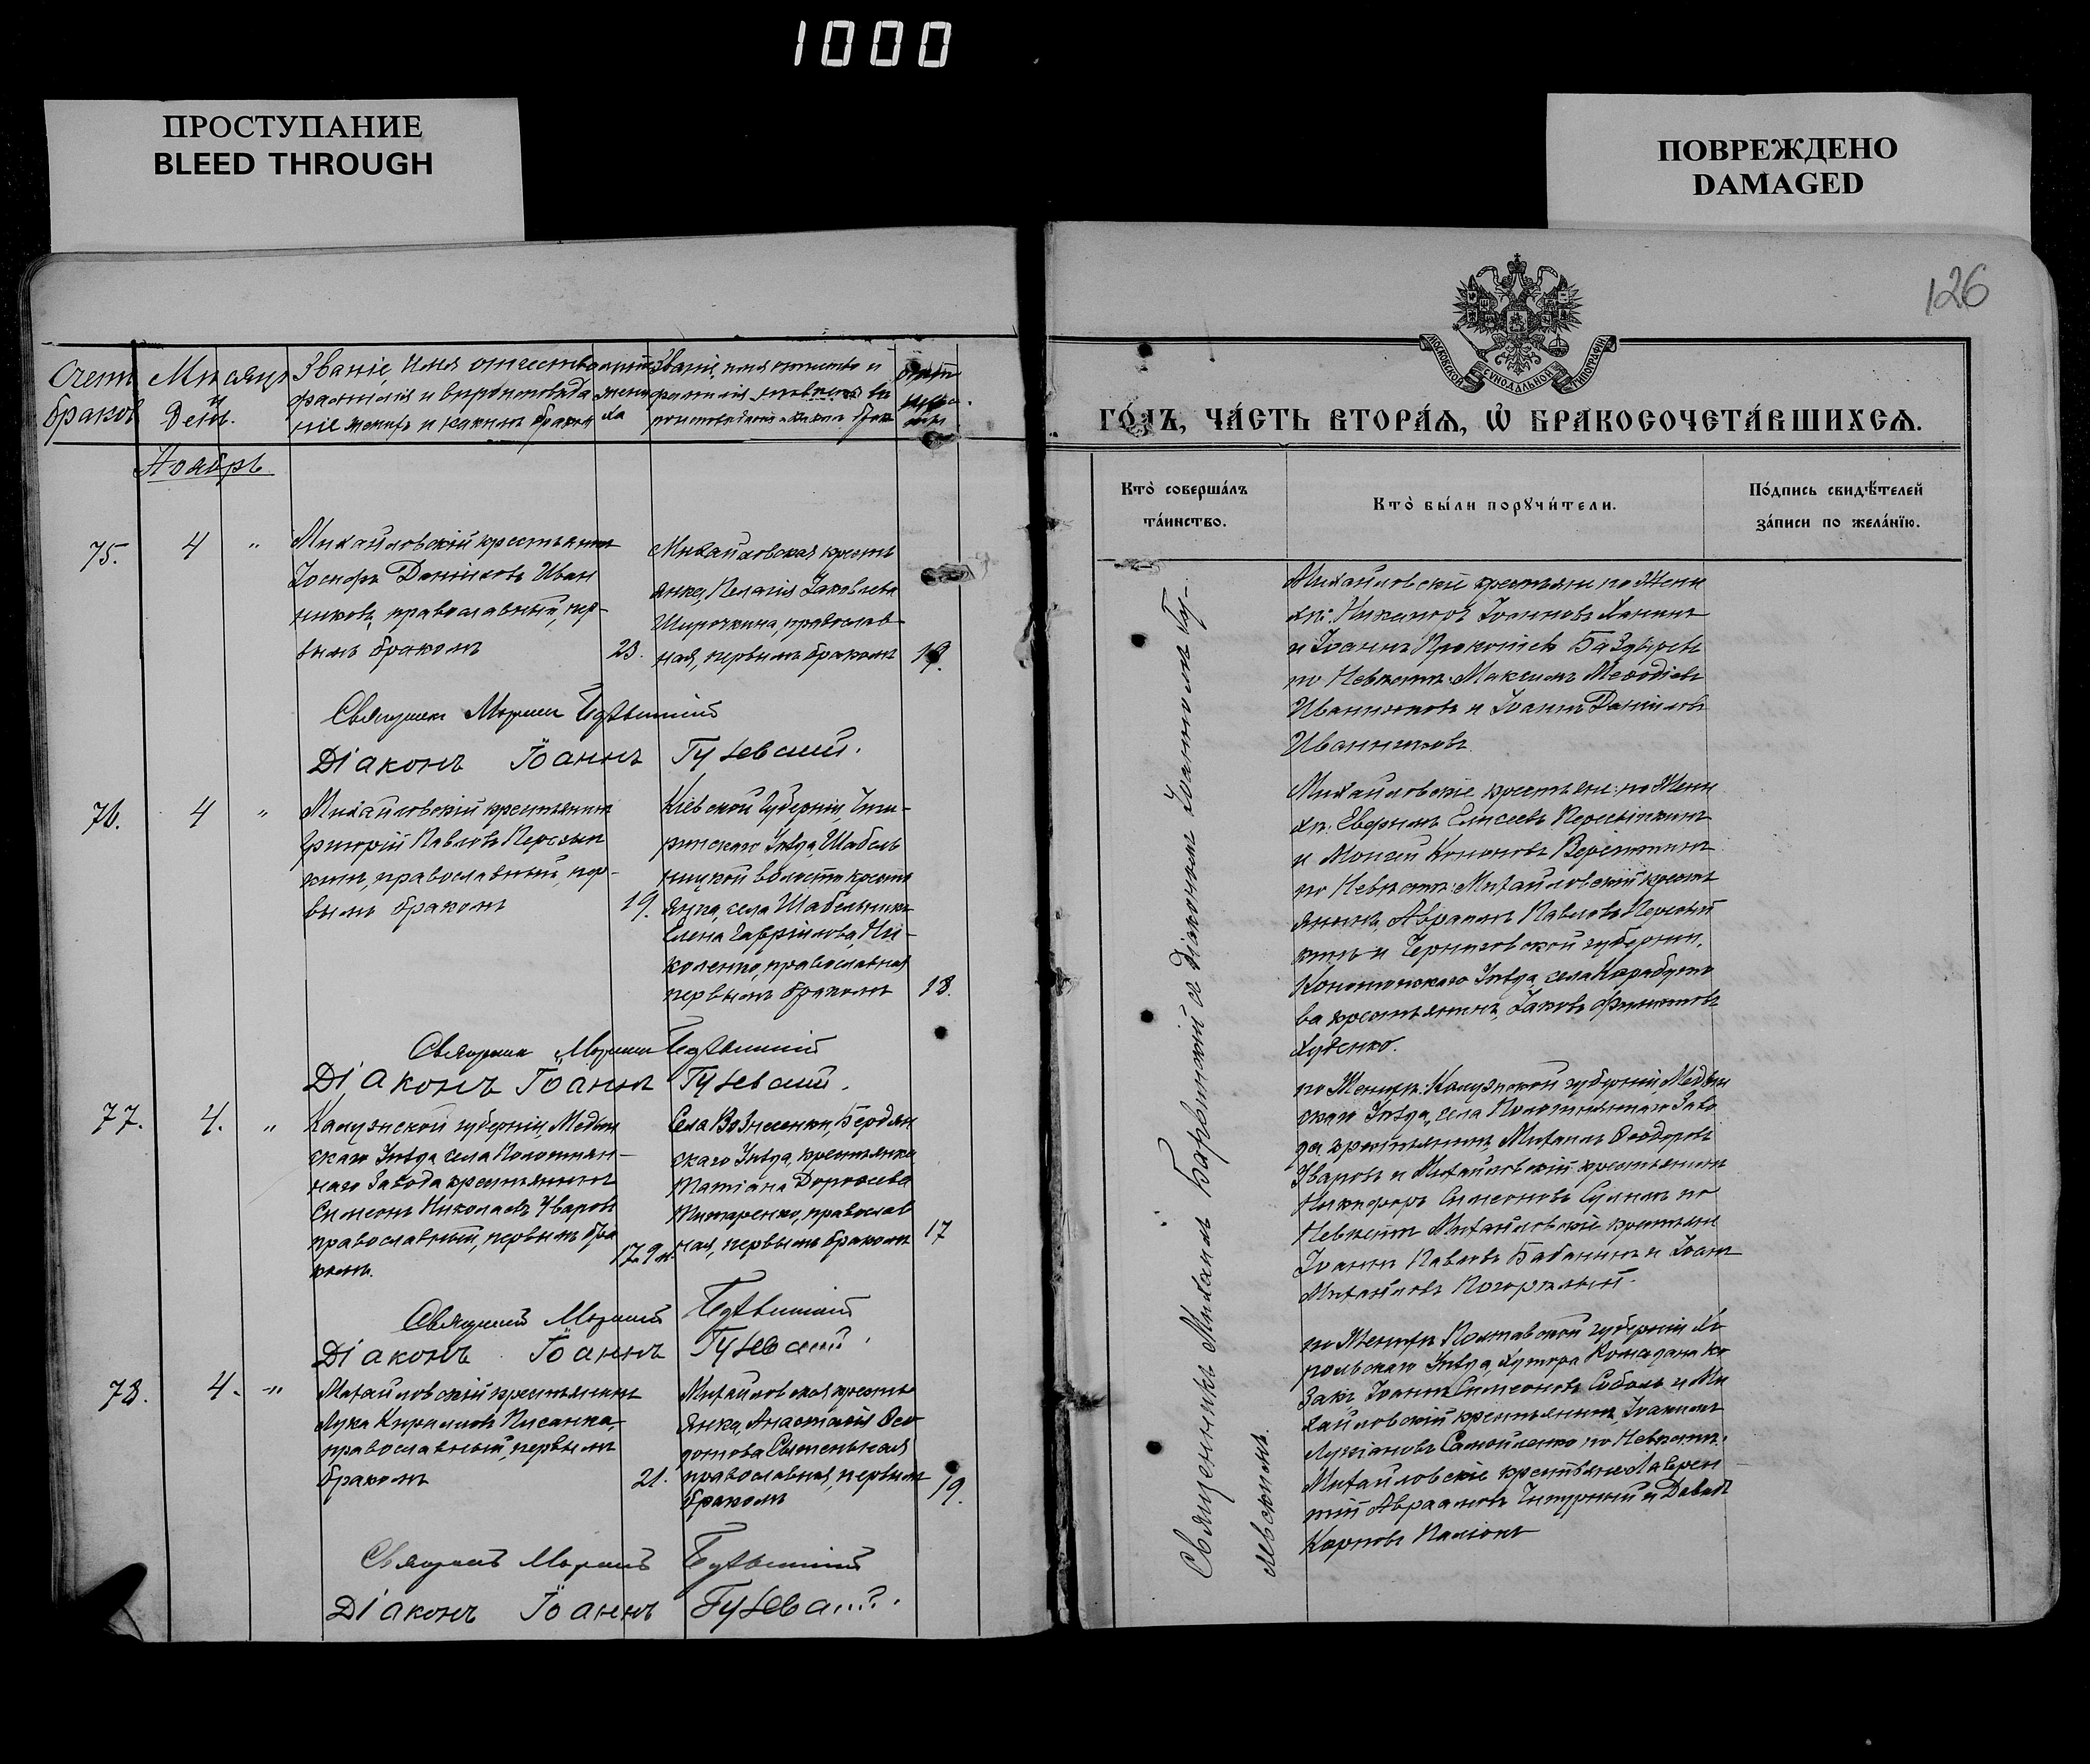 1000
ПРОСТУПАНИЕ
BLEED THROUGH
ПОВРЕЖДЕНО
DAMAGED
126
Счетъ браковъ
Мѣсяцъ и День.
Званіе, имя отчество
фамилія и вѣроисповѣда
ніе жениха и какимъ бракомъ
Званіе, имя отчество и
фамилія невѣсты вѣ
роисповѣданіе и какимъ брак
Ноябрь
75.
4 "
Михайловскій крестьянинъ
Іосифъ Даниловъ Иван
никовъ, православный, пер-
вымъ бракомъ
23.
Михайловская кресть
янка, Пелагія Іаковлева
Широчкина, православ
ная, первымъ бракомъ
19.
Священникъ
Діаконъ Іоаннъ
76.
4 "
Михайловскій крестьянинъ
Григорій Павловъ Пересып
кинъ, православный, пер-
вымъ бракомъ
19.
Кіевской Губерніи, Чиги-
ринскаго Уѣзда, Шабель
ницкой волости кресть
янка, села Шабельники
Елена Гавріилова Ни-
коленко, православная
первымъ бракомъ
18.
Священникъ
Діаконъ Іоаннъ
77.
4. "
Калужской губерніи, Медын
скаго Уѣзда села Полотнян-
наго Завода крестьянинъ
Симеонъ Николаевъ Уваровъ
православный, первымъ бра
комъ.
17.9 м.
Села Вознесенки, Бердян
скаго Уѣзда, крестьянка
Татіана Дорофеева
православ
ная, первымъ бракомъ
17
Священникъ
Діаконъ Іоаннъ
78.
4. "
Михайловскій крестьянинъ
Лука Кирилловъ Писанка,
православный, первымъ
бракомъ
21.
Михайловская кресть
янка, Анастасія Ѳео
дотова
православная, первымъ
бракомъ
19.
Священникъ
Діаконъ Іоаннъ
МОСКОВСКОЙ СУНОДАЛЬНОЙ ТИПОГРАФІИ
ГО́ДЪ, ЧА́СТЬ ВТОРА́Я, Ѡ БРАКОСОЧЕТА́ВШИХСЯ.
Кто̀ соверша́лъ
та́инство.
Кто̀ бы́ли порꙋчи́тели.
По́дпись свидѣ́телей
за́писи по жела́нїю.
Священникъ Михаилъ Барвинскій съ Діакономъ Іоанномъ Гу-
левскимъ.
Михайловскіе крестьяне по Жени
хѣ: Никаноръ Іоанновъ Ханинъ
и Іоаннъ Прокопіевъ Баздыревъ
по Невѣстѣ: Максимъ Меѳодіевъ
Иванниковъ и Іоаннъ Даниловъ
Иванниковъ.
Михайловскіе крестьяне: по Жени
хѣ: Евфимъ Елисеевъ Пересыпкинъ
и Моисей Кононовъ
по Невѣстѣ: Михайловскій кресть
янинъ, Авраамъ Павловъ Пересып
кинъ и Черниговской губерніи,
Конотопскаго Уѣзда, села Карабуто
ва крестьянинъ, Іаковъ Филиповъ
Худенко.
по Женихѣ: Калужской губерніи, Медын
скаго Уѣзда, села Полотнянаго Заво
да крестьянинъ, Михаилъ Ѳеодоровъ
Уваровъ и Михайловскій крестьянинъ
Никифоръ Симеоновъ Сулимъ по
Невѣстѣ Михайловскіе крестьяне
Іоаннъ Павловъ Бабанинъ и Іоаннъ
Михайловъ Погорѣлый.
по Женихѣ Полтавской губерніи Хо
рольскаго Уѣзда, Хутора ко
закъ Іоаннъ Симеоновъ Соболь и Ми
хайловскій крестьянинъ, Іоакимъ
Лукіановъ Самойленко по Невѣстѣ:
Михайловскіе крестьяне Лаврен
тій Авраамовъ и Давидъ
Карповъ